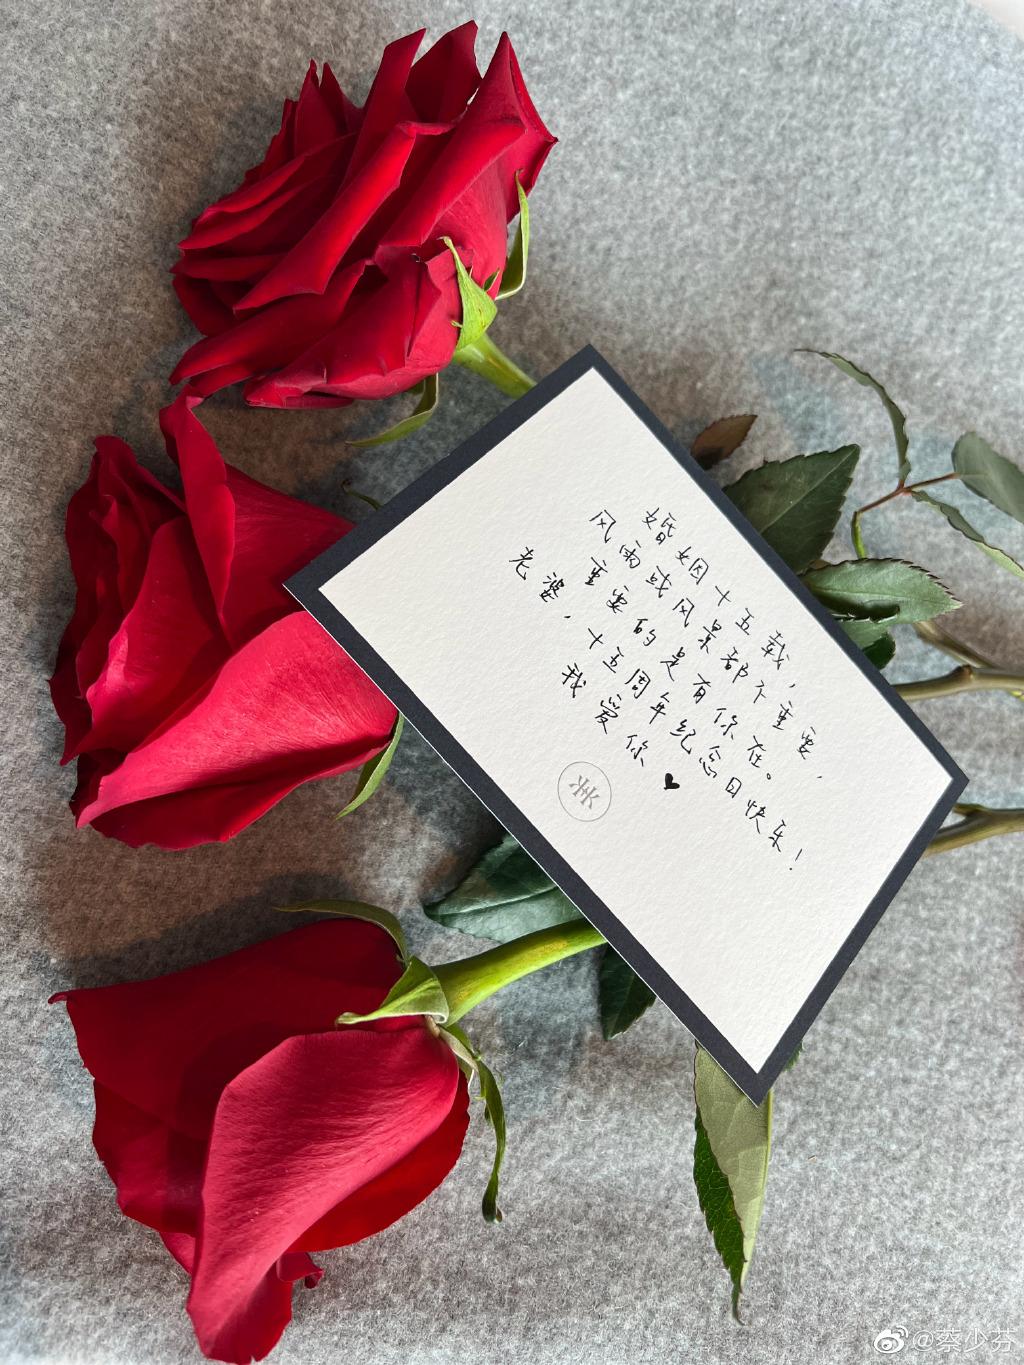 婚姻十五载，
风雨或风景都不重要，
重要的是有你在。
老婆，十五周年纪念日快乐！
我爱你♥
@蔡少芬